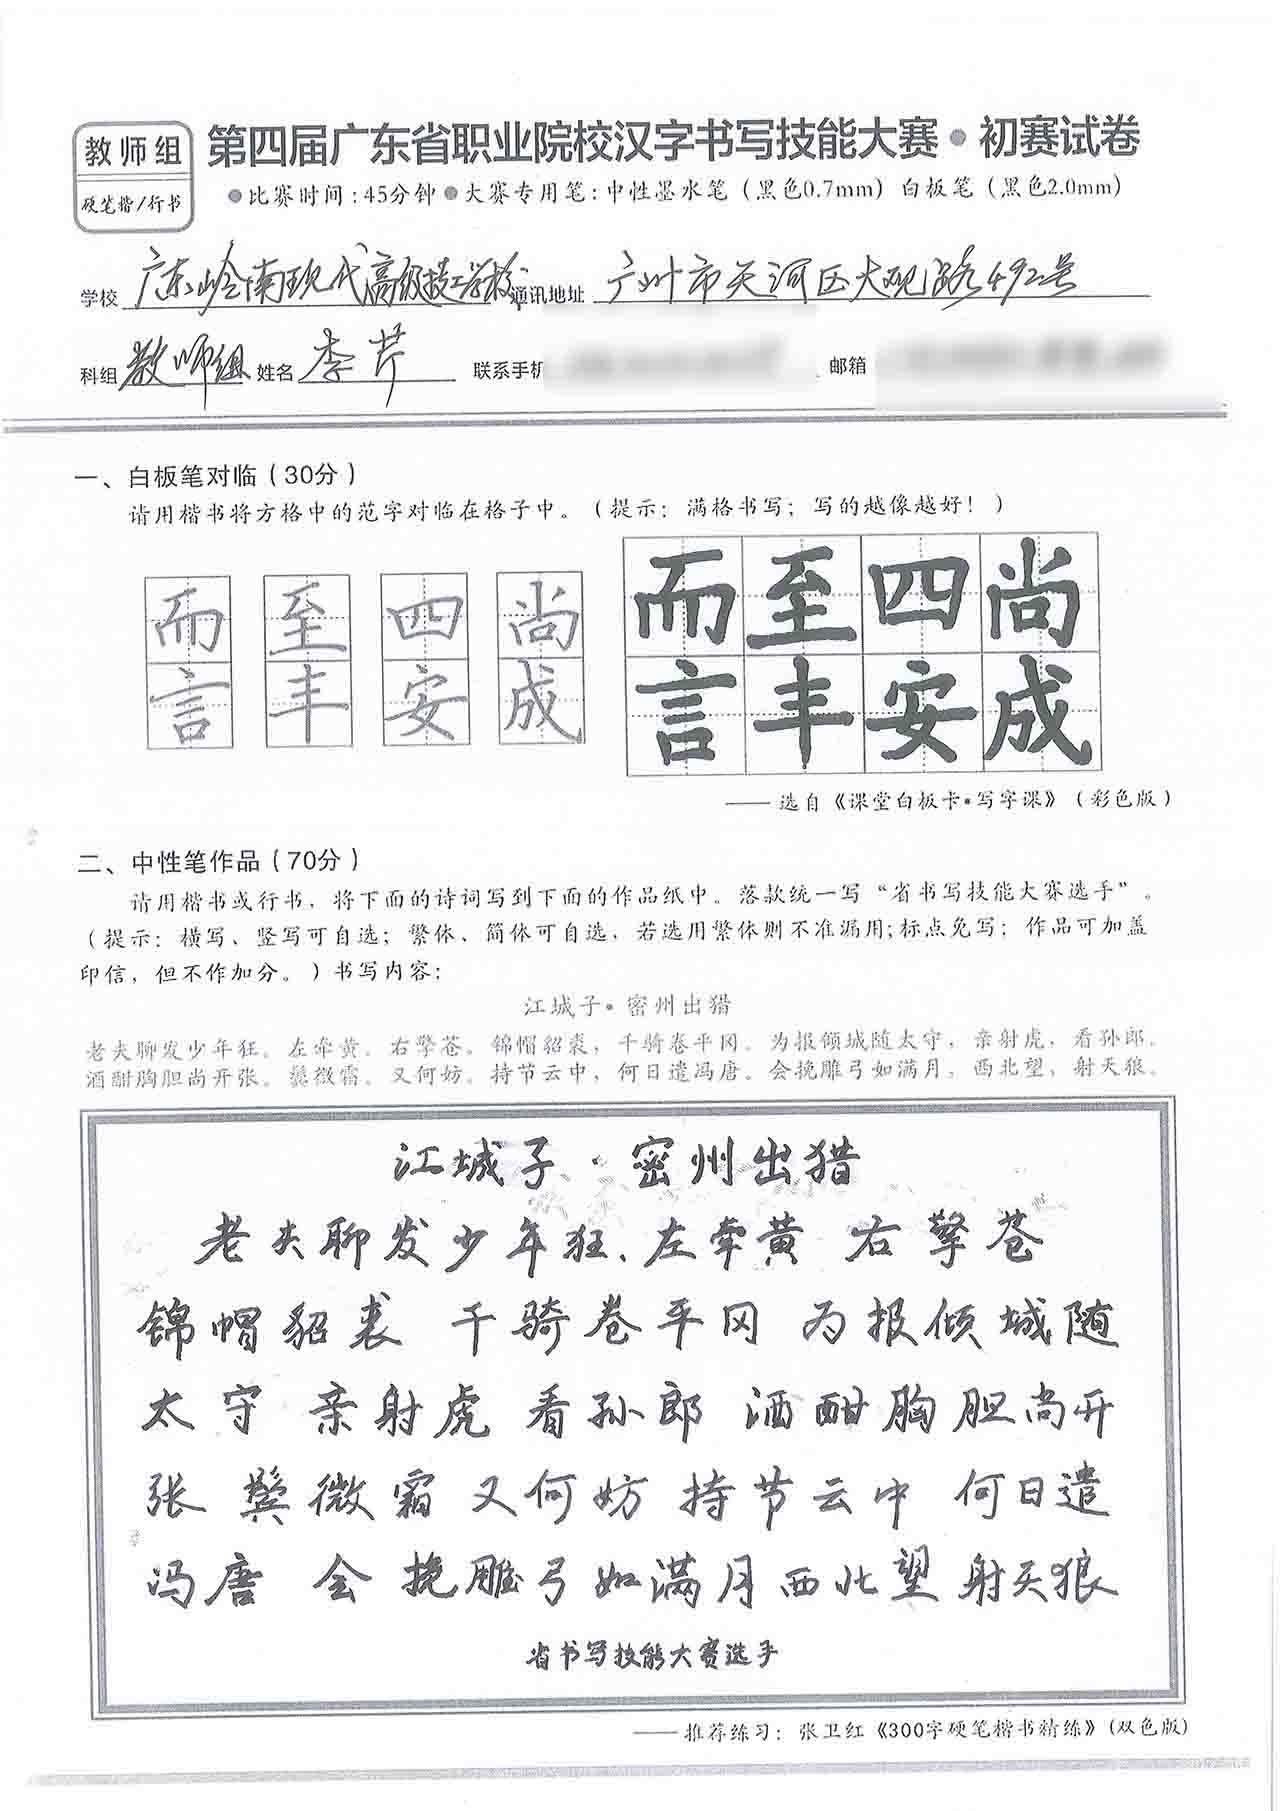 教师组
硬笔楷/行书
第四届广东省职业院校汉字书写技能大赛•初赛试卷
●比赛时间:45分钟●大赛专用笔:中性墨水笔（黑色0.7mm）白板笔（黑色2.0mm）
学校 广东岭南现代高级技工学校 通讯地址 广州市天河区大观路492号
科组 教师组 姓名 李芹 联系手机 邮箱
一、白板笔对临（30分）
请用楷书将方格中的范字对临在格子中。（提示：满格书写；写的越像越好！）
而 至 四 尚 而至四尚
言 丰 安 成 言丰安成
——选自《课堂白板卡•写字课》（彩色版）
二、中性笔作品（70分）
请用楷书或行书，将下面的诗词写到下面的作品纸中。落款统一写“省书写技能大赛选手”。
（提示：横写、竖写可自选；繁体、简体可自选，若选用繁体则不准漏用;标点免写；作品可加盖
印信，但不作加分。）书写内容：
江城子•密州出猎
老夫聊发少年狂。左牵黄。右擎苍。锦帽貂裘，千骑卷平冈。为报倾城随太守，亲射虎，看孙郎。
酒酣胸胆尚开张。鬓微霜。又何妨。持节云中，何日遣冯唐。会挽雕弓如满月，西北望，射天狼。
江城子·密州出猎
老夫聊发少年狂、左牵黄 右擎苍
锦帽貂裘 千骑卷平冈 为报倾城随
太守 亲射虎 看孙郎 酒酣胸胆尚开
张 鬓微霜 又何妨 持节云中 何日遣
冯唐 会挽雕弓如满月西北望 射天狼
省书写技能大赛选手
——推荐练习：张卫红《300字硬笔楷书精练》(双色版)